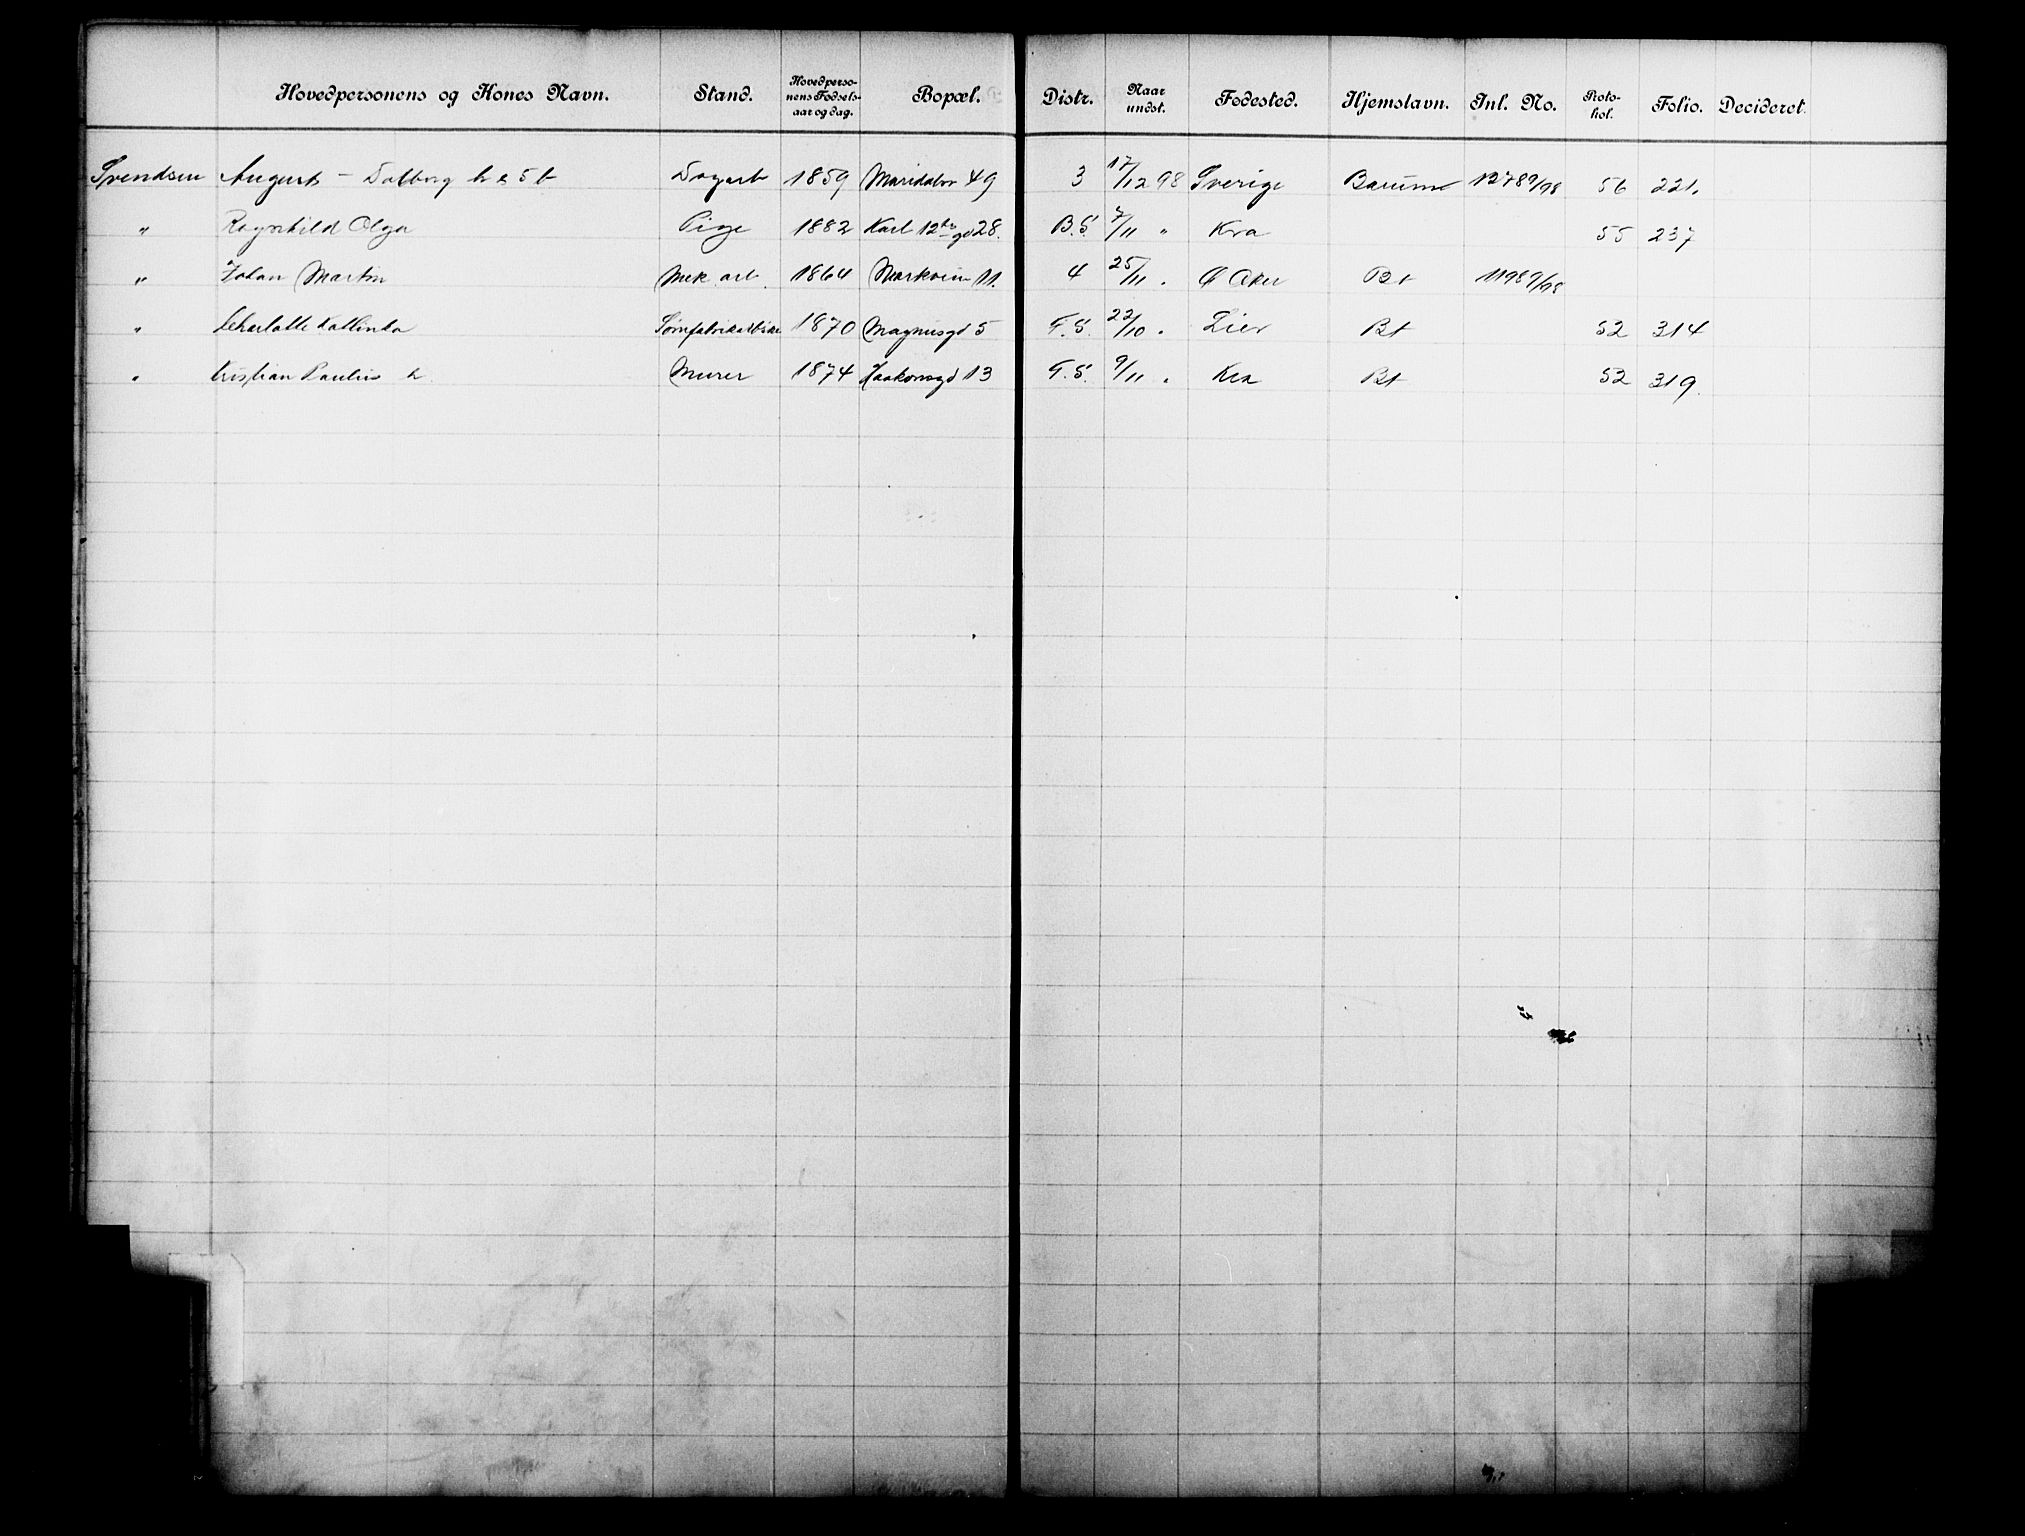 Hovedpersonens og Kones Navn. Stand. Hovedperso-nens Fødsels-aar og dag. Bopæl. Distr. Naar undst. Fødested. Hjemstavn. Inl. No. Proto-kol. Folio. Decideret.
Svendsen August - Dalborg h & 5 b Dagarb 1859 Maridalsv 49 3 17/12 98 Sverige Bærum 12789/98 56 221.
" Ragnhild Olga Pige 1882 Karl 12tes gd 28. B.S. 7/11 " Kra 55 237
" Johan Martin Mek. arb. 1864 Markvein 11. 4 25/11 " Ø Aker Bt 11989/98
" Charlotte Kathinka 1870 Magnusgd 5 F.S. 22/10 " Lier Bt 52 314
" Kristian Paulius h. Murer 1874 Haakonsgd 13 F.S. 9/11 " Kra Bt 52 319.